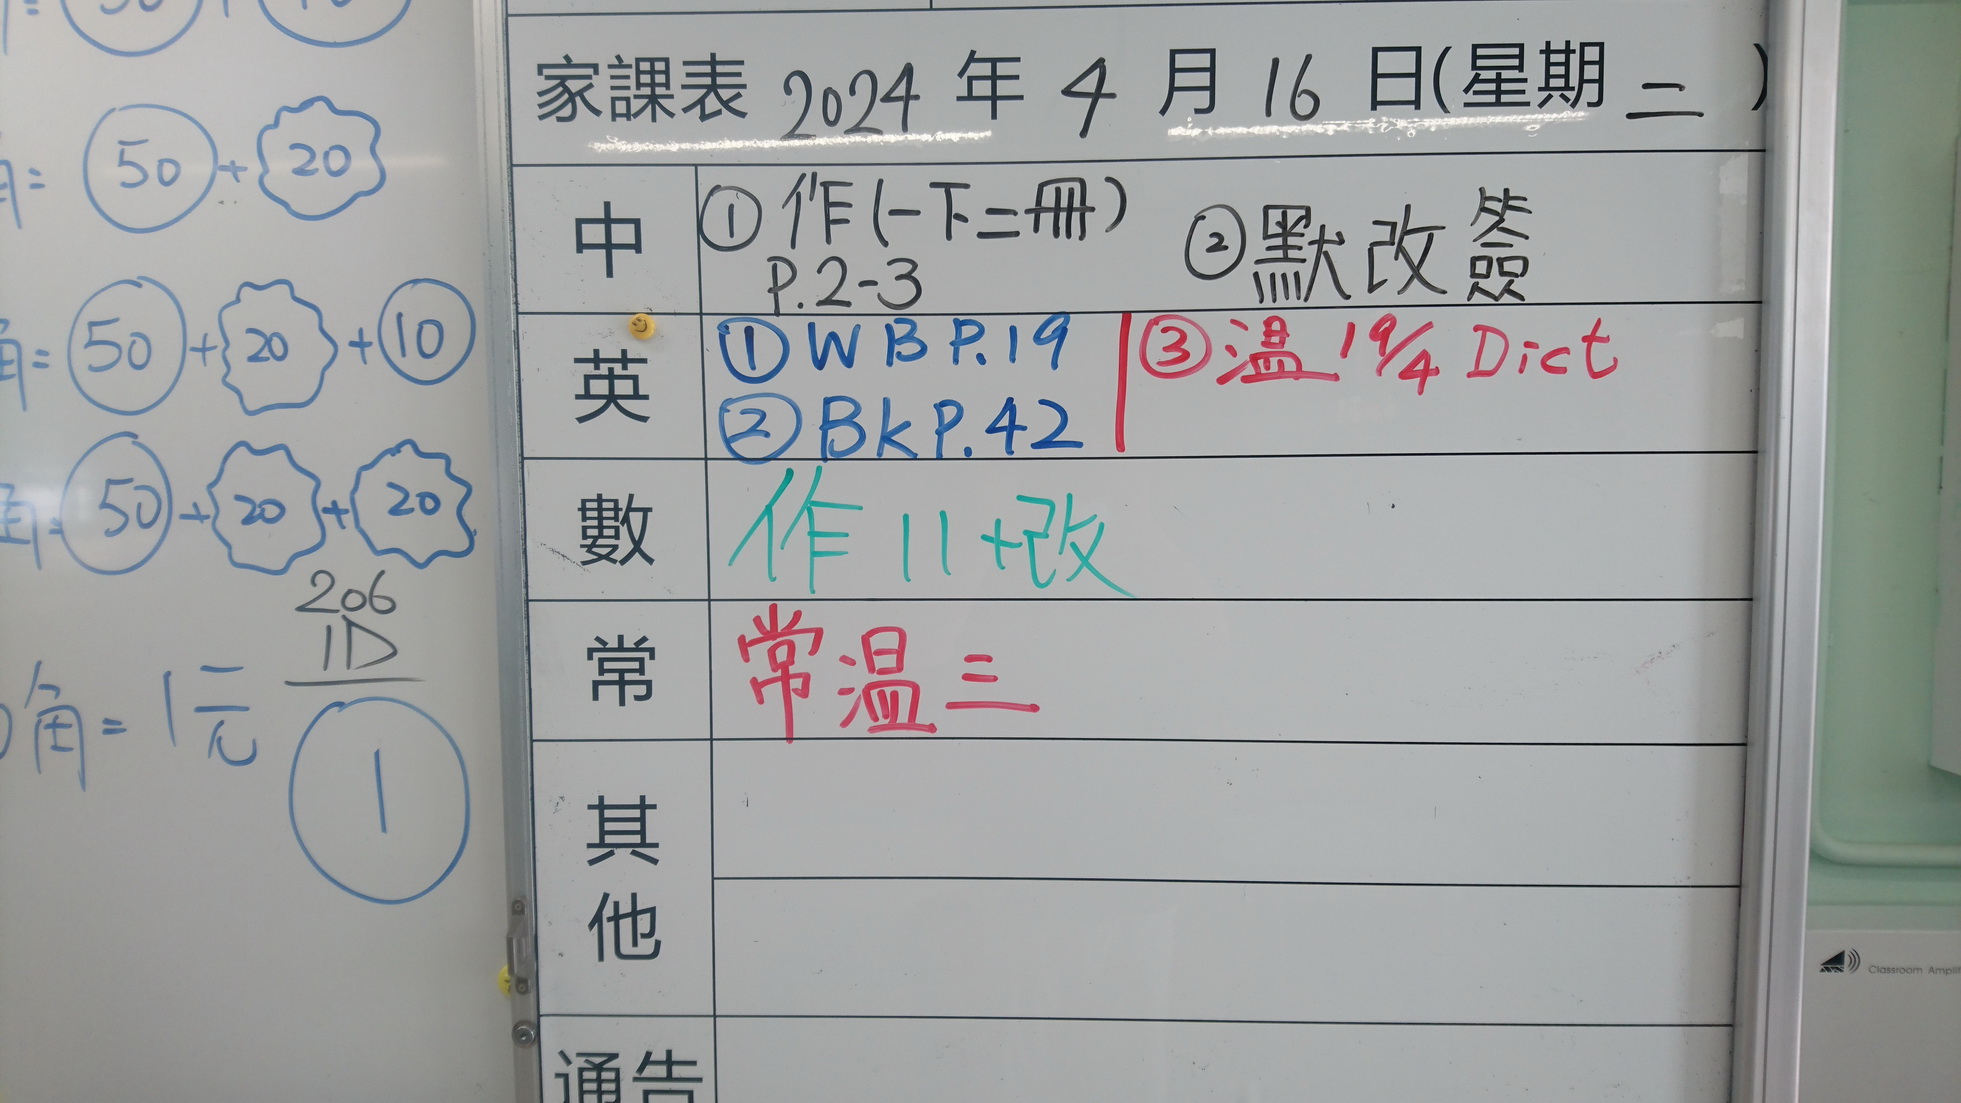 角= 50 + 20
角= 50 + 20 + 10
角= 50 + 20 + 20
206
1D
角= 1元
1
家課表 2024 年 4 月 16 日(星期 二 )
中 ① 作(一下二冊) ② 默改簽
P.2-3
英 ① WB P.19 ③ 溫 19/4 Dict
② Bk P.42
數 作 11 +改
常 常溫三
其他
通告
Classroom